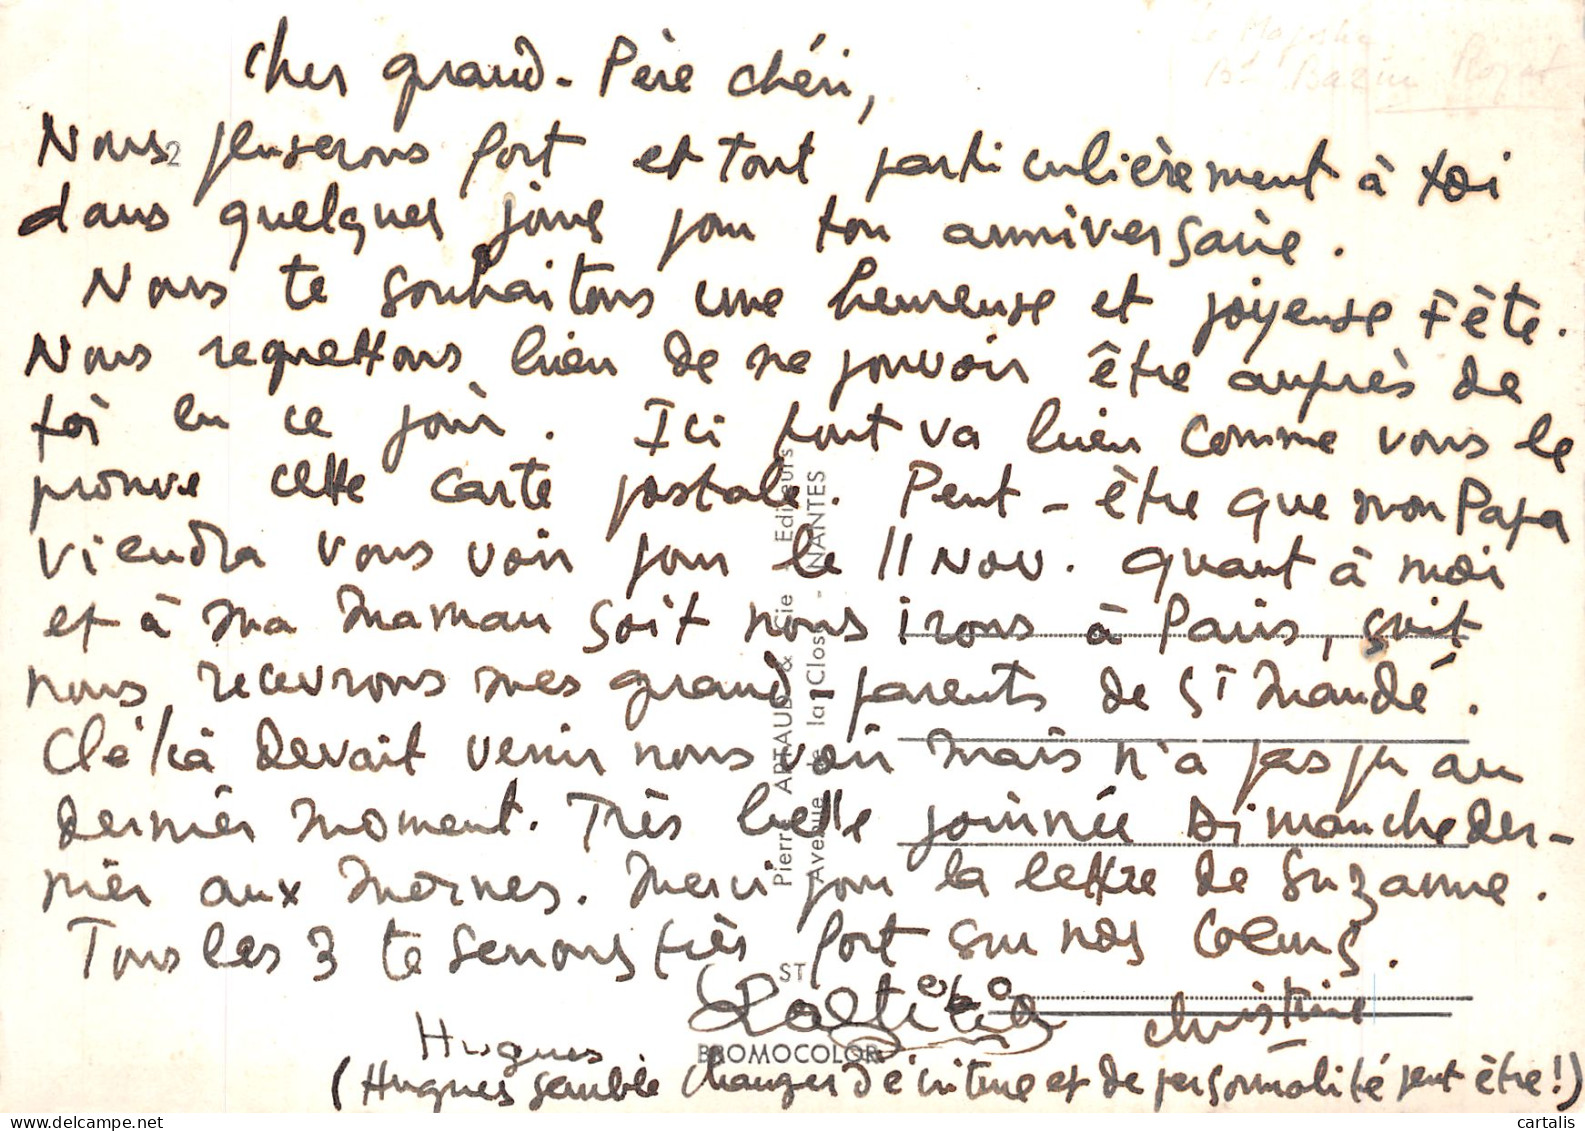 Cher grand-Père chéri,
Nous penserons fort et tout particulièrement à toi
dans quelques jours pour ton anniversaire.
Nous te souhaitons une heureuse et joyeuse Fête.
Nous regrettons bien de ne pouvoir être auprès de
toi en ce jour. Ici tout va bien comme vous le
prouve cette carte postale. Peut-être que mon Papa
viendra vous voir pour le 11 Nov. Quant à moi
et à ma maman soit nous irons à Paris, soit
nous recevrons mes grand-parents de St Mandé.
Clélia devait venir nous voir mais n'a pas pu au
dernier moment. Très belle journée Dimanche der-
nier aux Mornes. Merci pour la lettre de Suzanne.
Tous les 3 te serrons très fort sur nos coeurs.
Laetitia Christine
Hugues
(Hugues semble changer d'écriture et de personnalité peut être!)
2
Pierre ARTAUD & Cie Editeurs
Avenue de la Close - NANTES
ST
BROMOCOLOR
cartalis